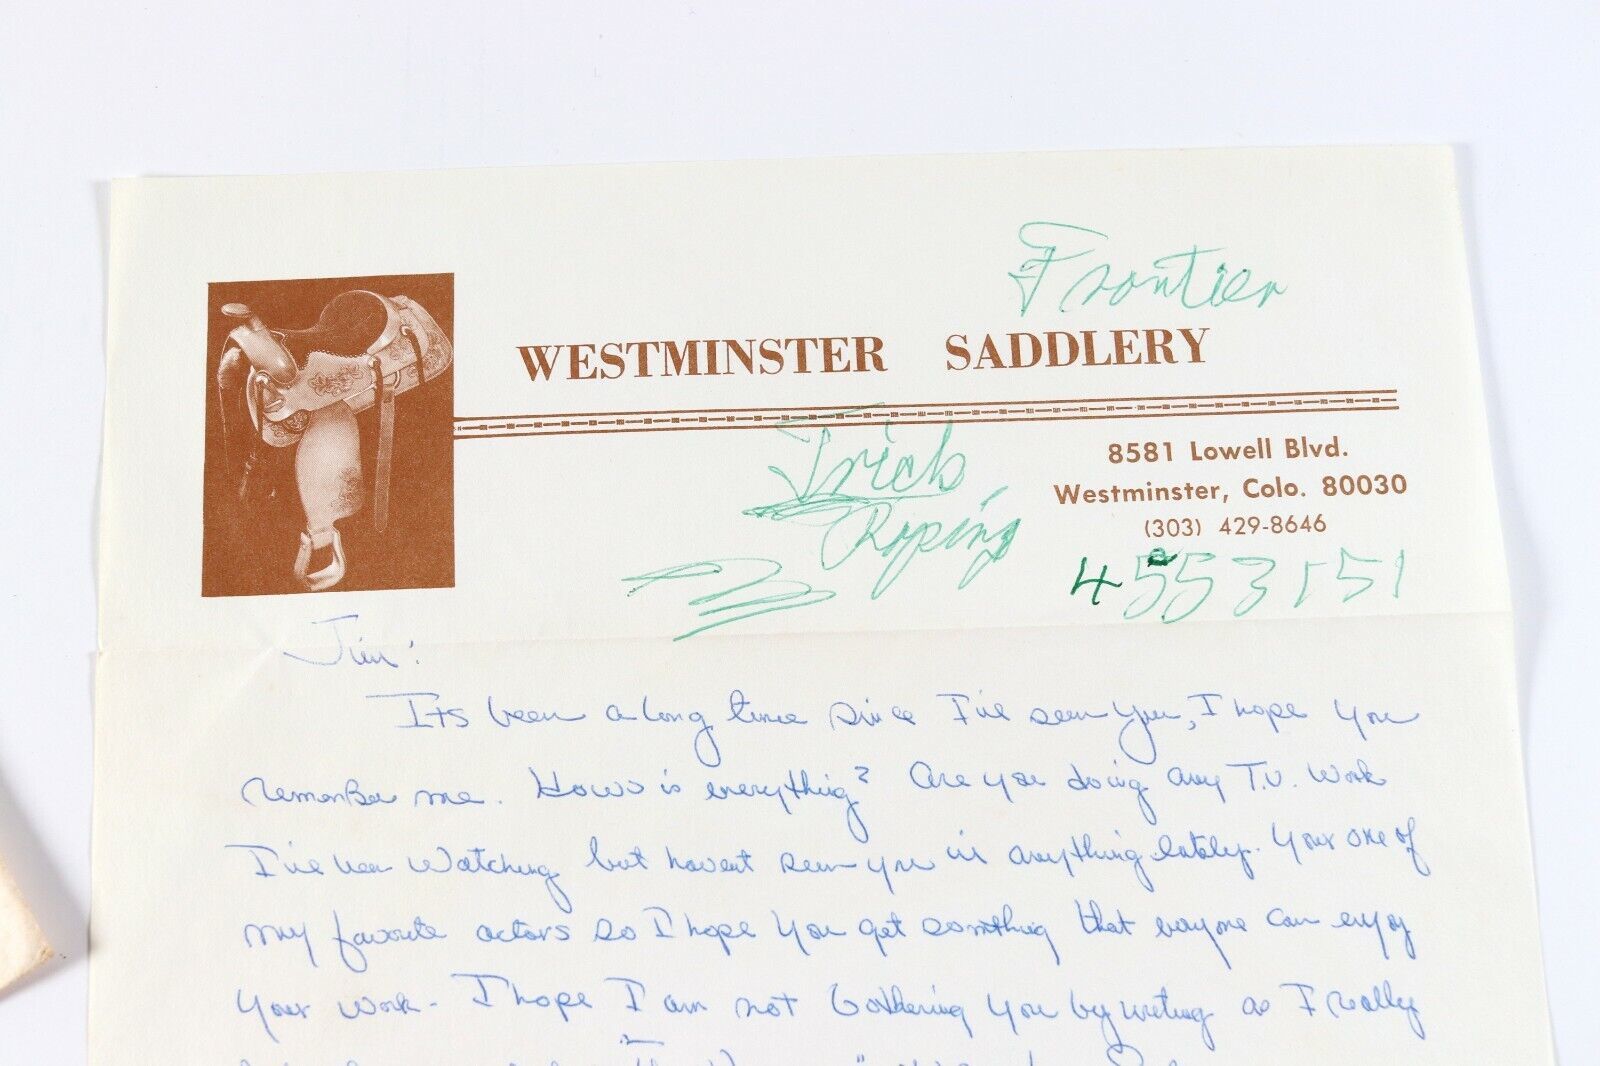 Frontier
WESTMINSTER SADDLERY
8581 Lowell Blvd.
Westminster, Colo. 80030
(303) 429-8646
Trick
Roping
4553151
Jim:
Its been a long time since I've seen you, I hope you
remember me. Hows is everything? Are you doing any T.V. Work
I've been Watching but havent seen you in anything lately. Your one of
my favorite actors so I hope you get something that everyone can enjoy
your work - I hope I am not bothering you by writing as I really